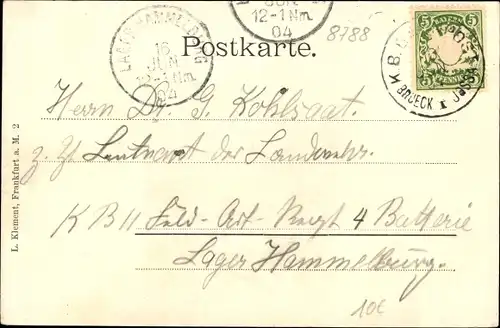 LAGER HAMMELBURG
16
JUN
12-1 Nm.
04
JUN
12-1 Nm.
04
8788
5 BAYERN 5
5 PFENNIG 5
K.B.
BRUECK
Postkarte.
Herrn Dr. G. Kohlsaat.
z. Zt. Leutnant der Landwehr
K B 11 Feld-Art-Regt 4 Batterie
Lager Hammelburg.
10€
L. Klement, Frankfurt a. M. 2